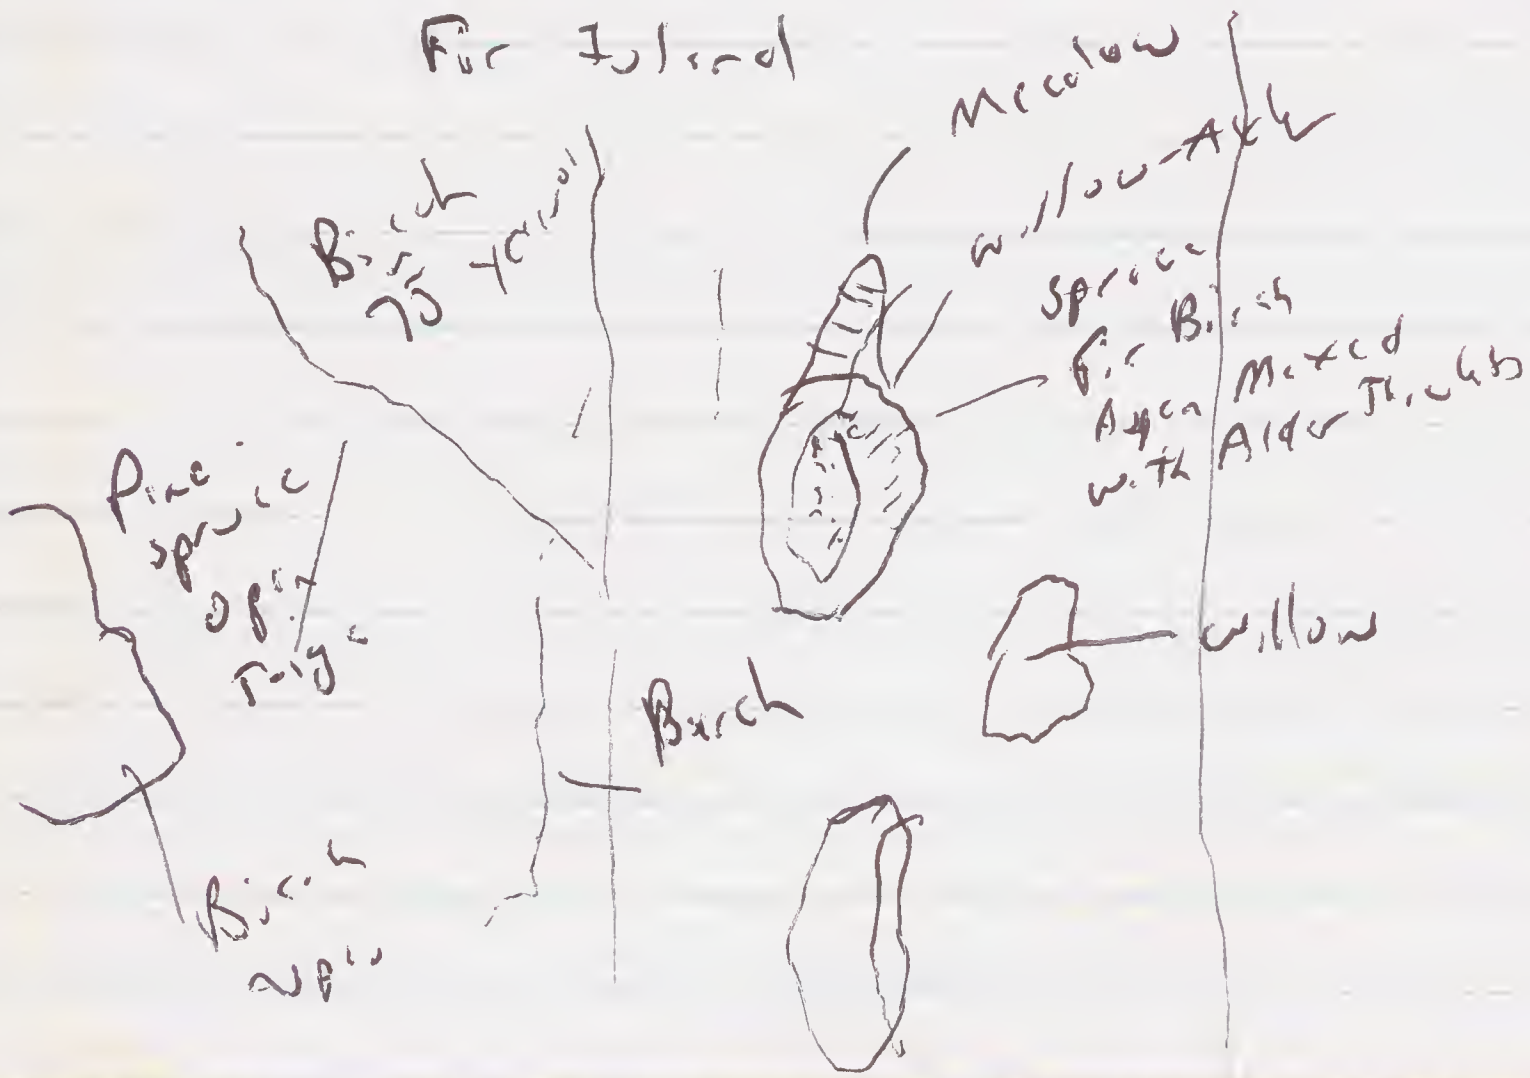 Fir Island
Meadow
Birch
75 years
Willow-Ax
Spruce
Fir Birch
Aspen Mixed
with Alder Thickets
Pine
spruce
open
Taiga
Willow
Birch
Birch